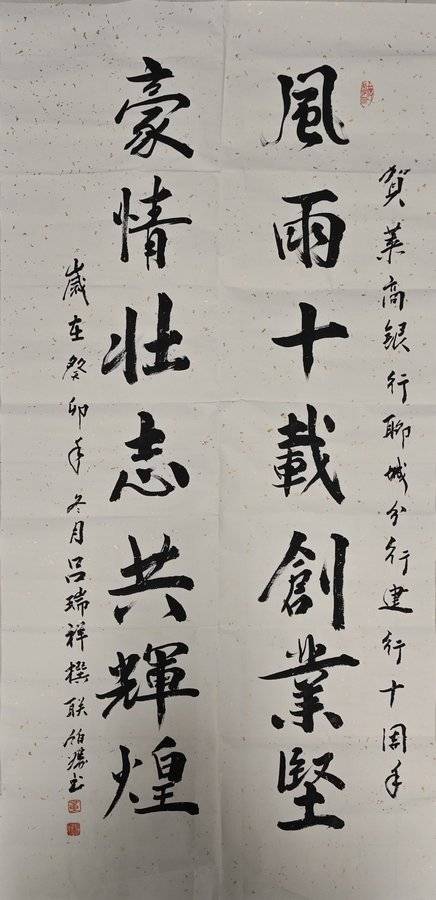 贺莱商银行聊城分行建行十周年
風雨十載創業堅
豪情壮志共輝煌
歲在癸卯年冬月吕瑞祥撰联书